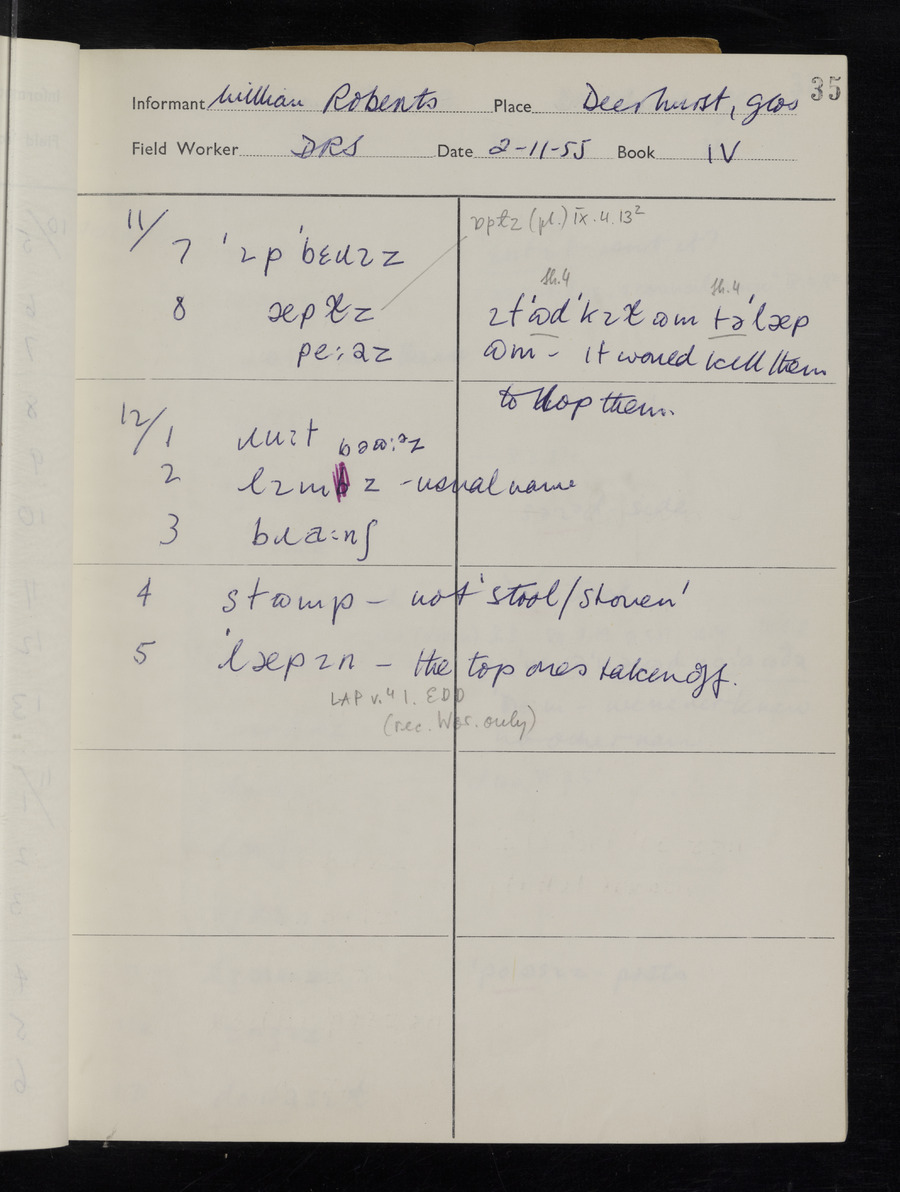 35
Informant William Roberts Place Deerhurst, Glos
Field Worker DRS Date 2-11-55 Book IV
ɒpɫz (pl.) IX.4.13²
11/
7 ˈɪpˈbɛɹɪz
8 æpɫz
pe:əz
sh.4 sh.4
ɪtˈʊdˈkɪɫ ʊm təˈlæp
ʊm - it would kill them
to lop them.
12/1 ɹuːt bəʊ:əz
2 lɪmz - usual name
3 bɹa:nʃ
4 stʊmp - not 'stool/stoven'
5 ˈlæpɪn - the top ones taken off.
LAP v.4 1. EDD
(rec. Wor. only)